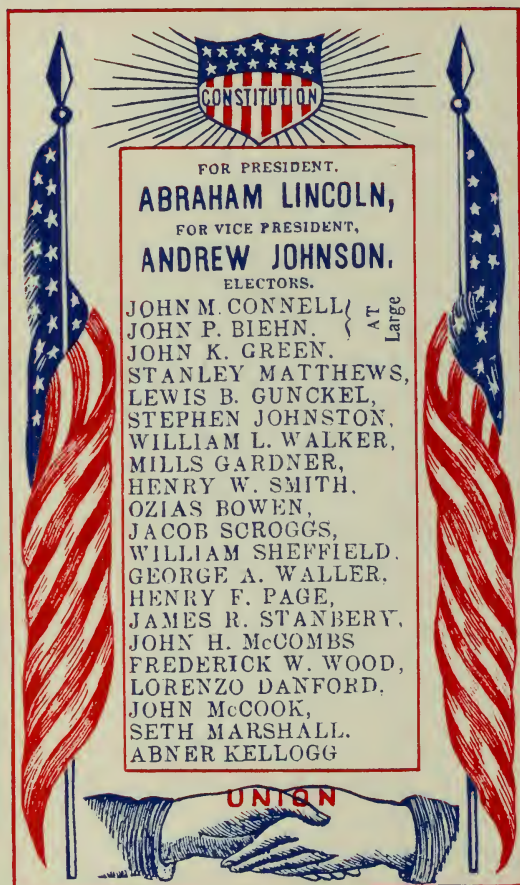 CONSTITUTION
FOR PRESIDENT,
ABRAHAM LINCOLN,
FOR VICE PRESIDENT,
ANDREW JOHNSON.
ELECTORS.
JOHN M. CONNELL
JOHN P. BIEHN.
AT
Large
JOHN K. GREEN.
STANLEY MATTHEWS,
LEWIS B. GUNCKEL,
STEPHEN JOHNSTON,
WILLIAM L. WALKER,
MILLS GARDNER,
HENRY W. SMITH,
OZIAS BOWEN,
JACOB SCROGGS,
WILLIAM SHEFFIELD.
GEORGE A. WALLER,
HENRY F. PAGE,
JAMES R. STANBERY,
JOHN H. McCOMBS
FREDERICK W. WOOD,
LORENZO DANFORD,
JOHN McCOOK,
SETH MARSHALL.
ABNER KELLOGG
UNION